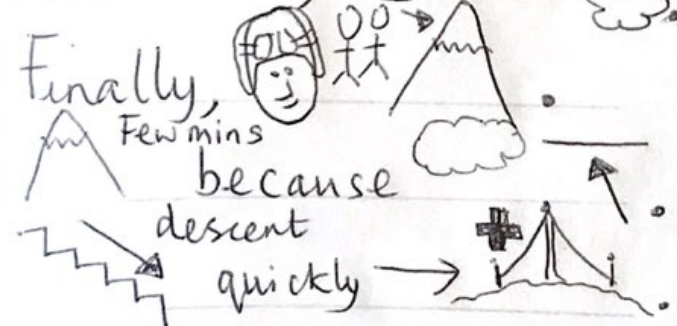 Finally,
Few mins
because
descent
quickly